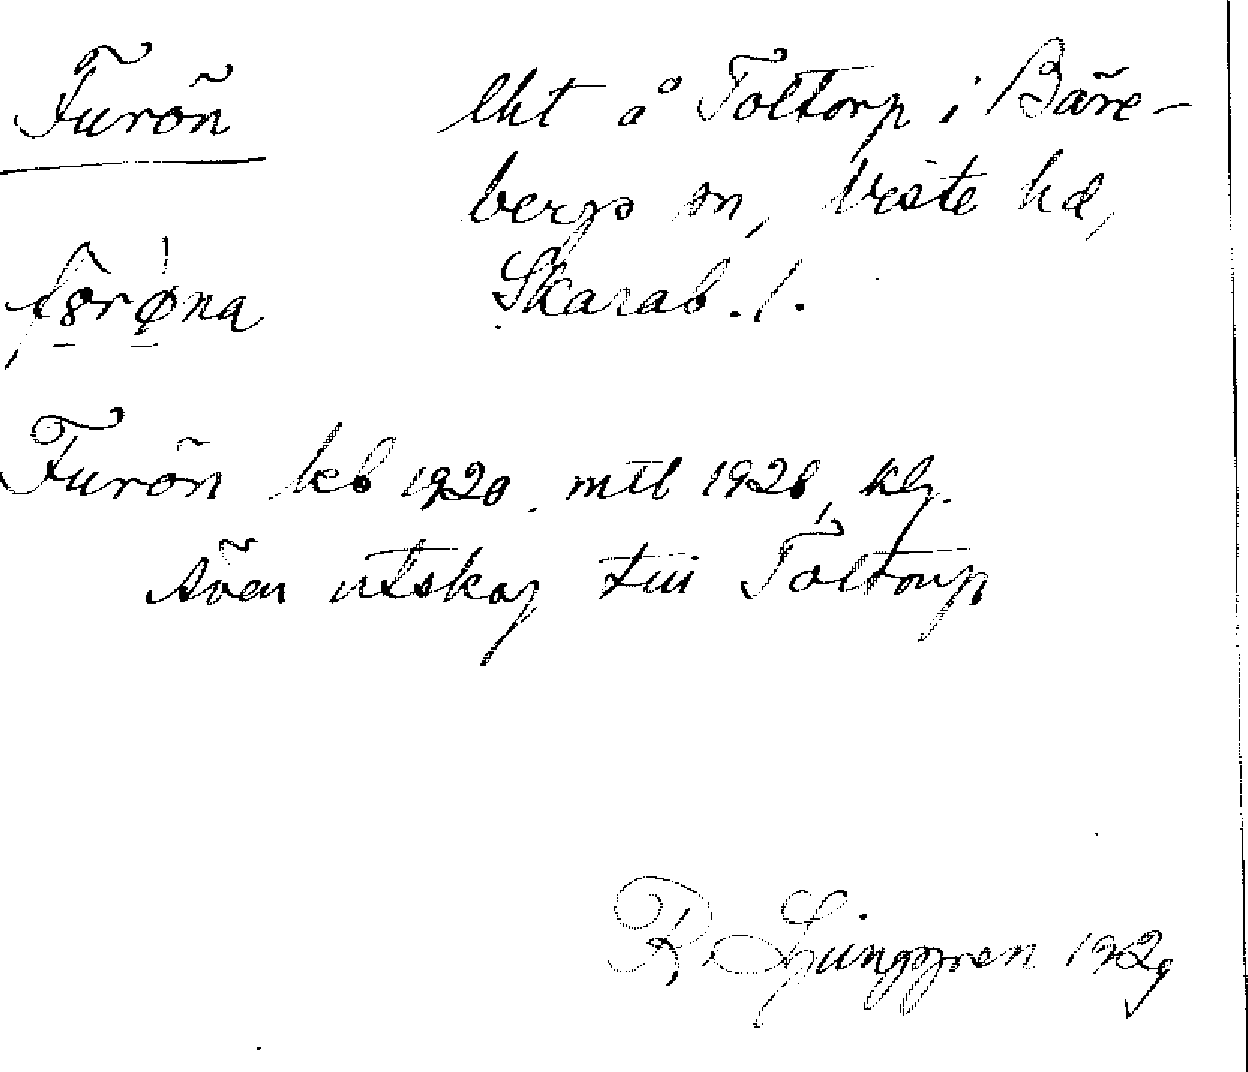 Furön lht å Toltorp i Bäre-
bergs sn, Viste hd,
førøna Skarab. l.
Furön kb 1920, mtl 1928, kly.
även utskog till Toltorp
R. Ljunggren 1929